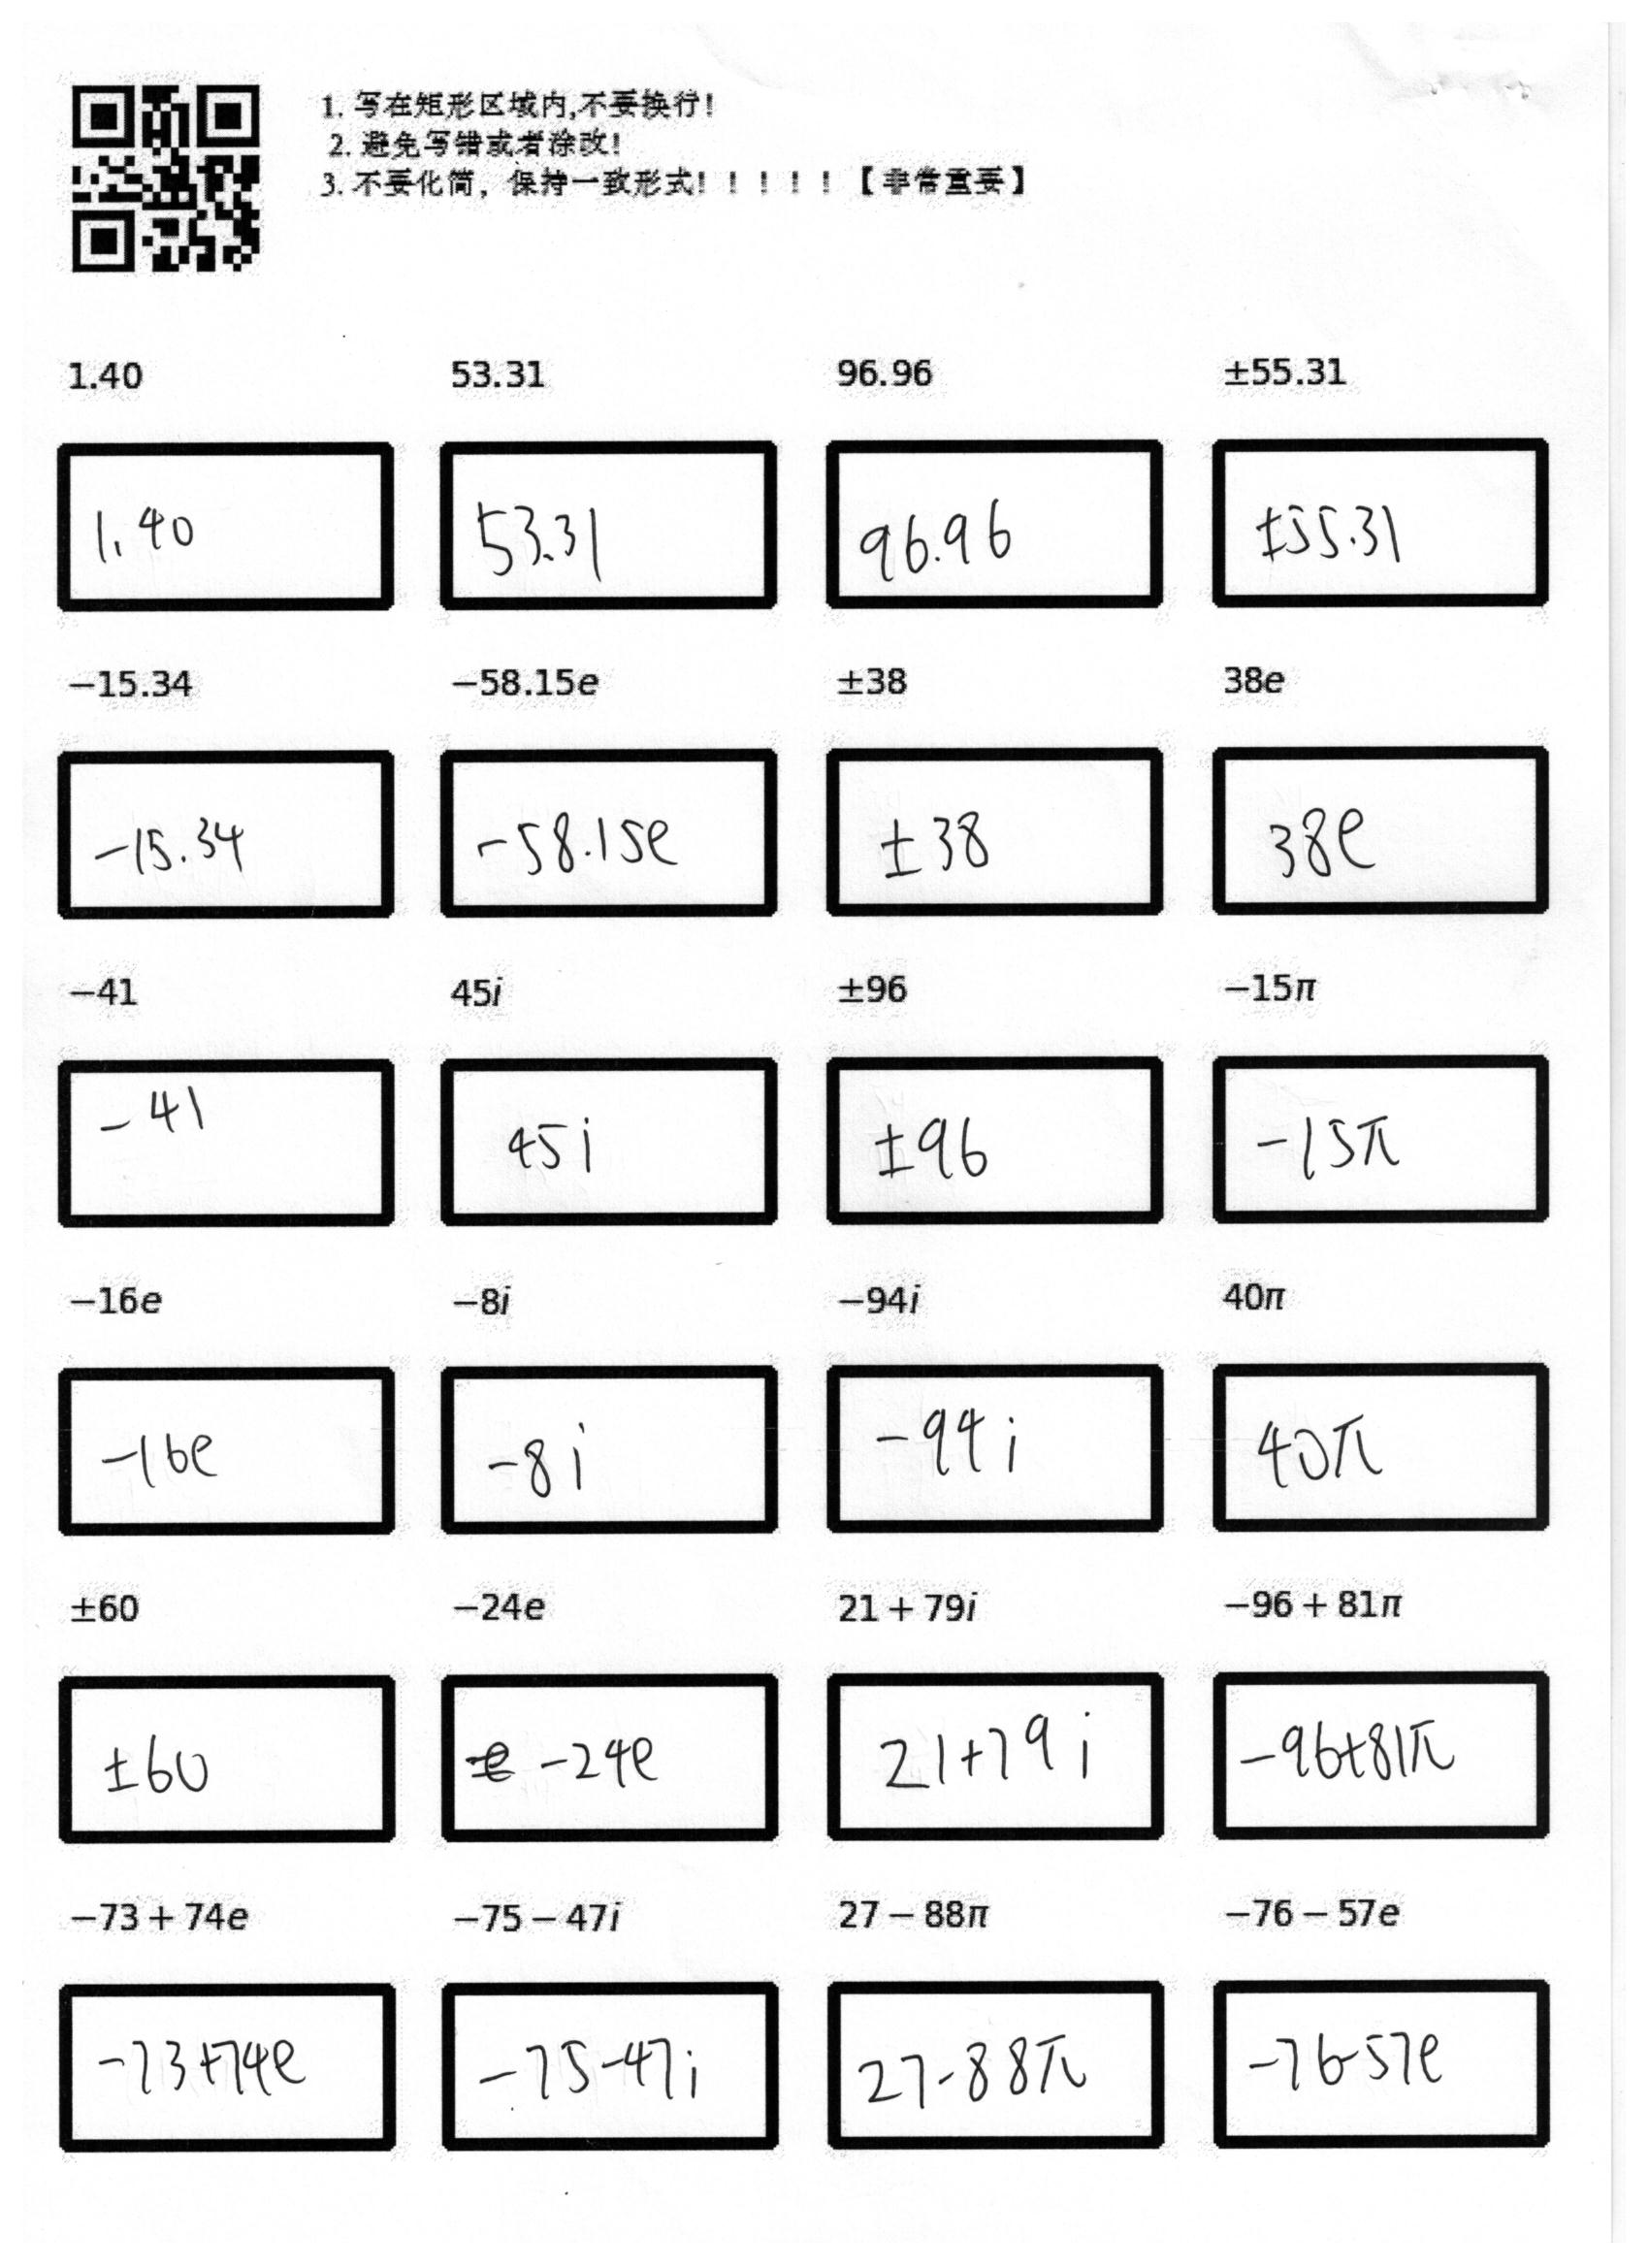 1. 写在矩形区域内,不要换行!
2. 避免写错或者涂改!
3. 不要化简，保持一致形式!！！！！【非常重要】
1.40 53.31 96.96 ±55.31
1.40 53.31 96.96 ±55.31
−15.34 −58.15e ±38 38e
-15.34 -58.15e ±38 38e
−41 45i ±96 −15π
-41 45i ±96 -15π
−16e −8i −94i 40π
-16e -8i -94i 40π
±60 −24e 21 + 79i −96 + 81π
±60 -24e 21+79i -96+81π
−73 + 74e −75 − 47i 27 − 88π −76 − 57e
-73+74e -75-47i 27-88π -76-57e